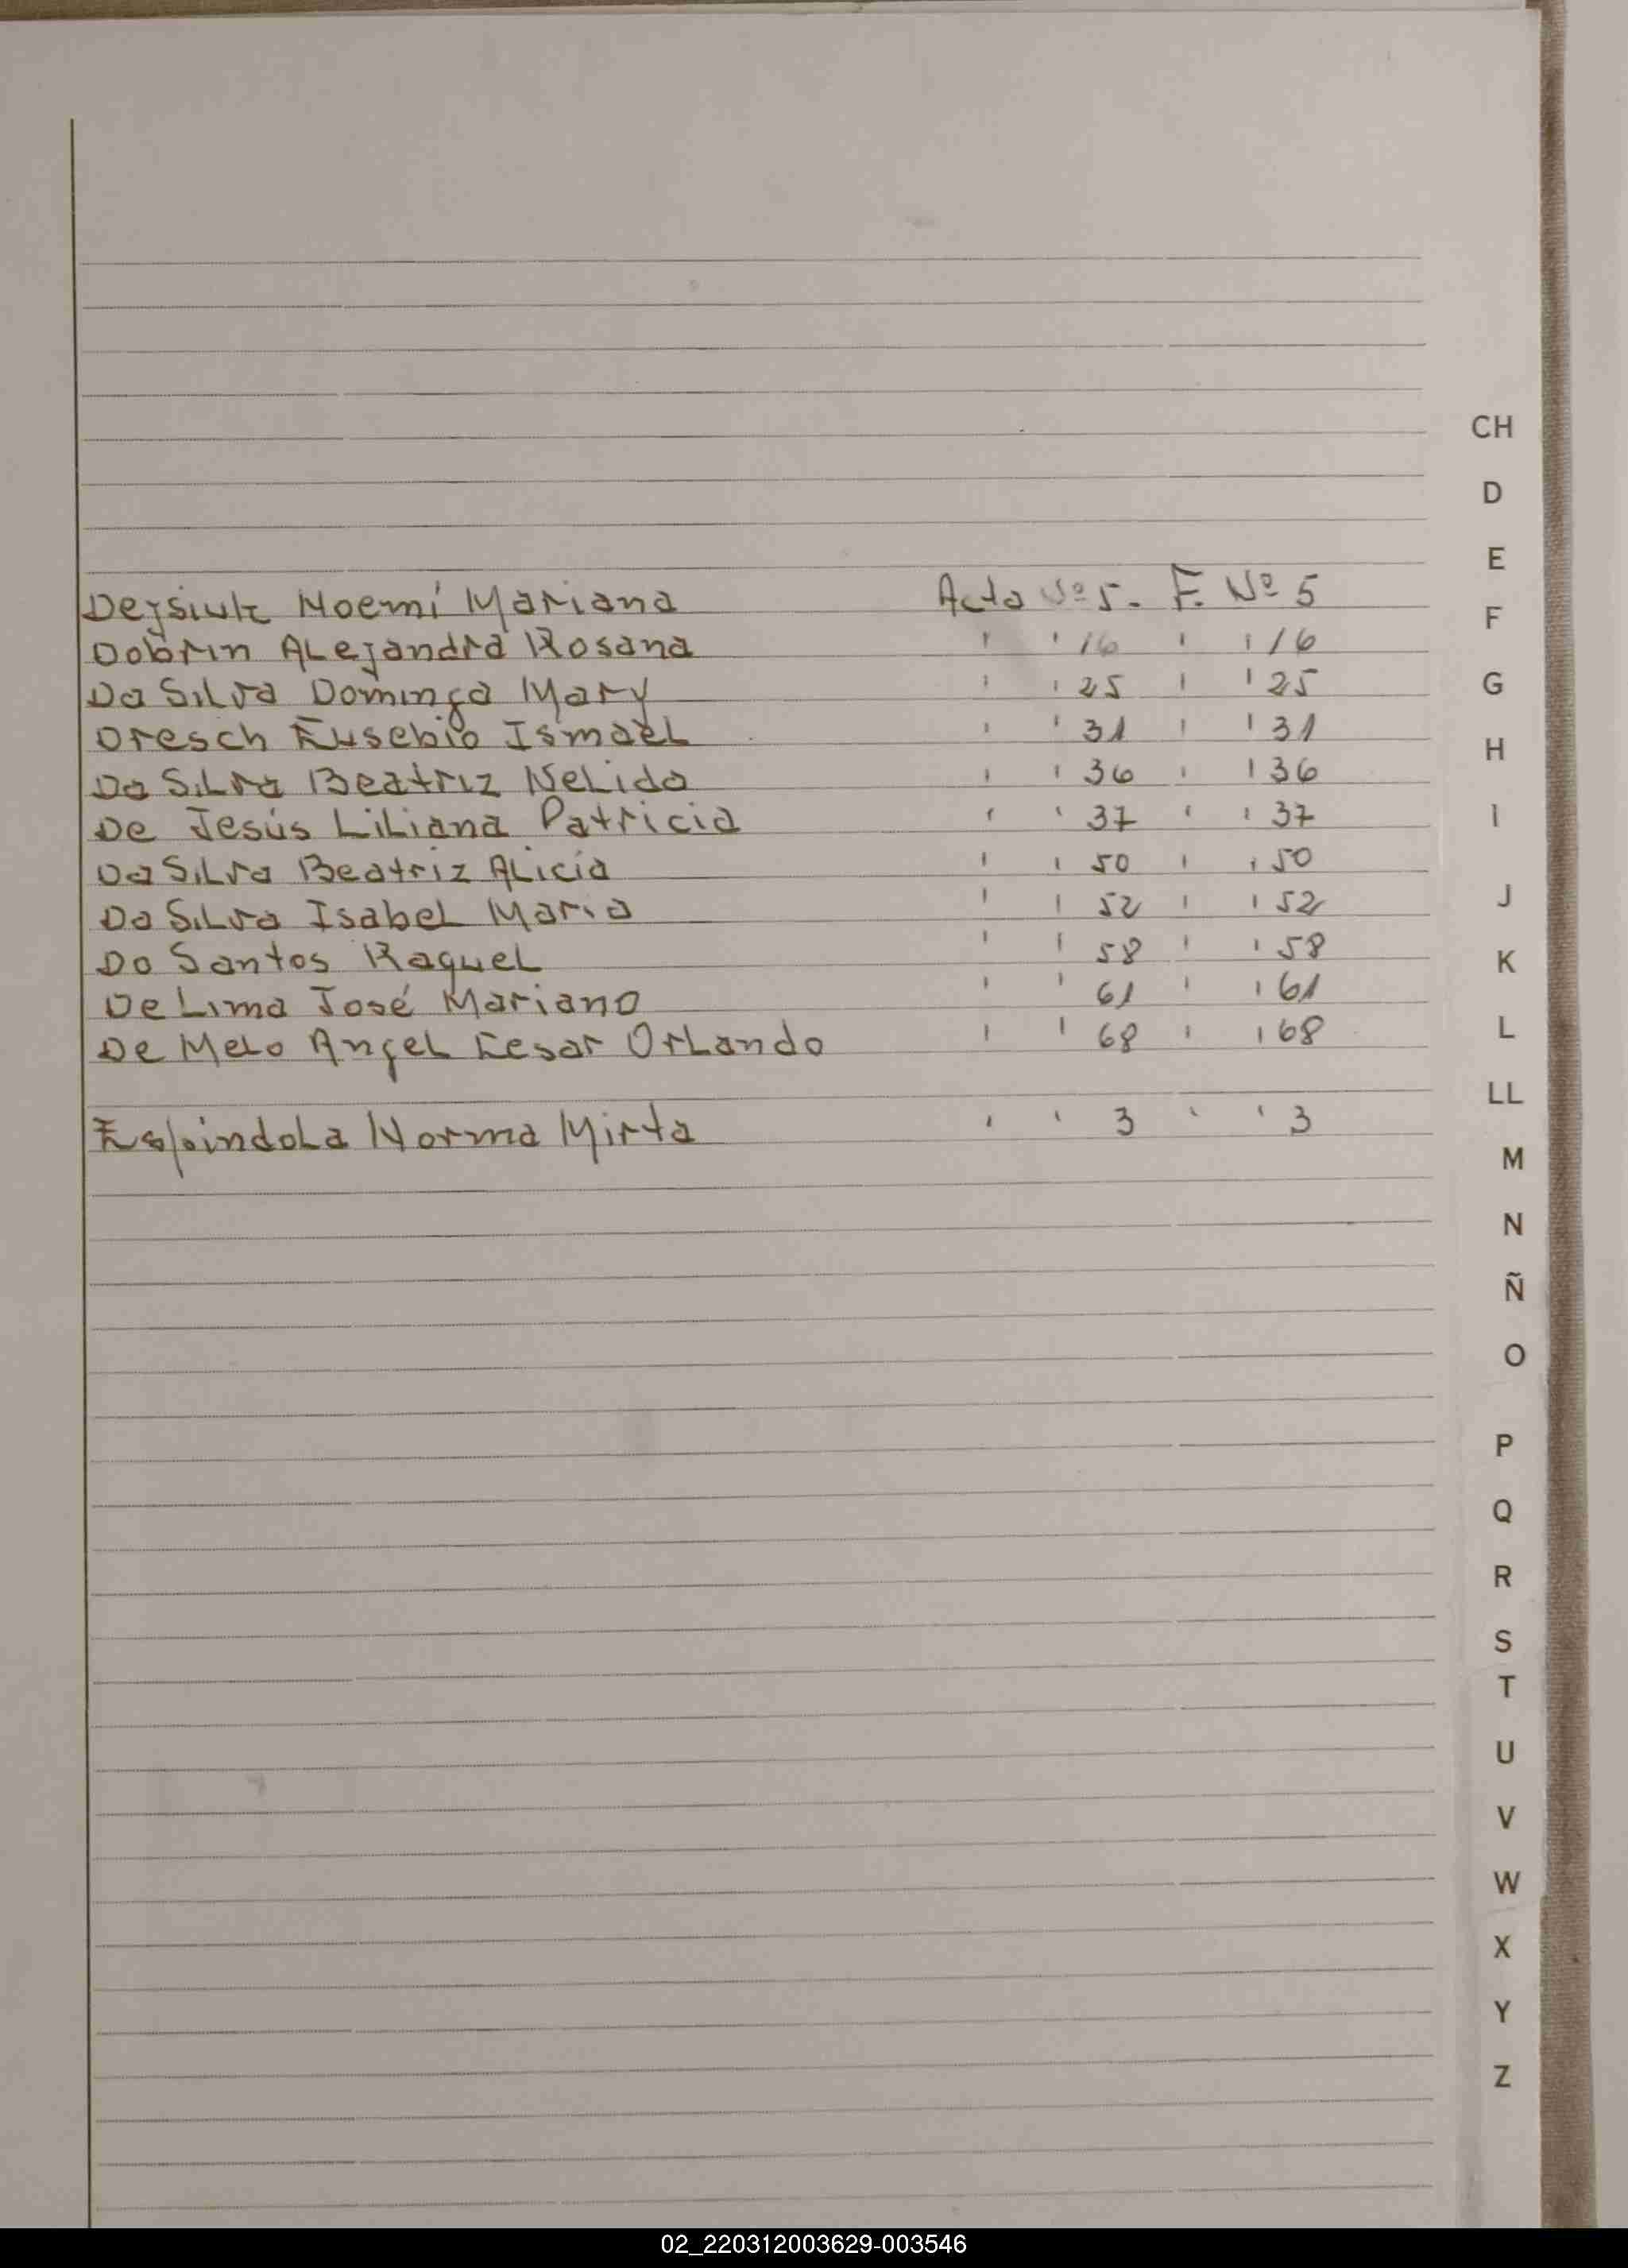 CH
D
E
Dejsiuk Noemí Mariana Acta Nº 5. F. Nº 5
F
Dobrin Alejandra Rosana ' ' 16 ' ' 16
Da Silva Dominga Mary ' ' 25 ' ' 25
G
Dresch Eusebio Ismael ' ' 31 ' ' 31
H
Da Silva Beatriz Nelida ' ' 36 ' ' 36
De Jesús Liliana Patricia ' ' 37 ' ' 37
I
Da Silva Beatriz Alicia ' ' 50 ' ' 50
Da Silva Isabel Maria ' ' 52 ' ' 52
J
Do Santos Raquel ' ' 58 ' ' 58
K
De Lima José Mariano ' ' 61 ' ' 61
De Melo Angel Cesar Orlando ' ' 68 ' ' 68
L
LL
Espindola Norma Mirta ' ' 3 ' ' 3
M
N
Ñ
O
P
Q
R
S
T
U
V
W
X
Y
Z
02_220312003629-003546